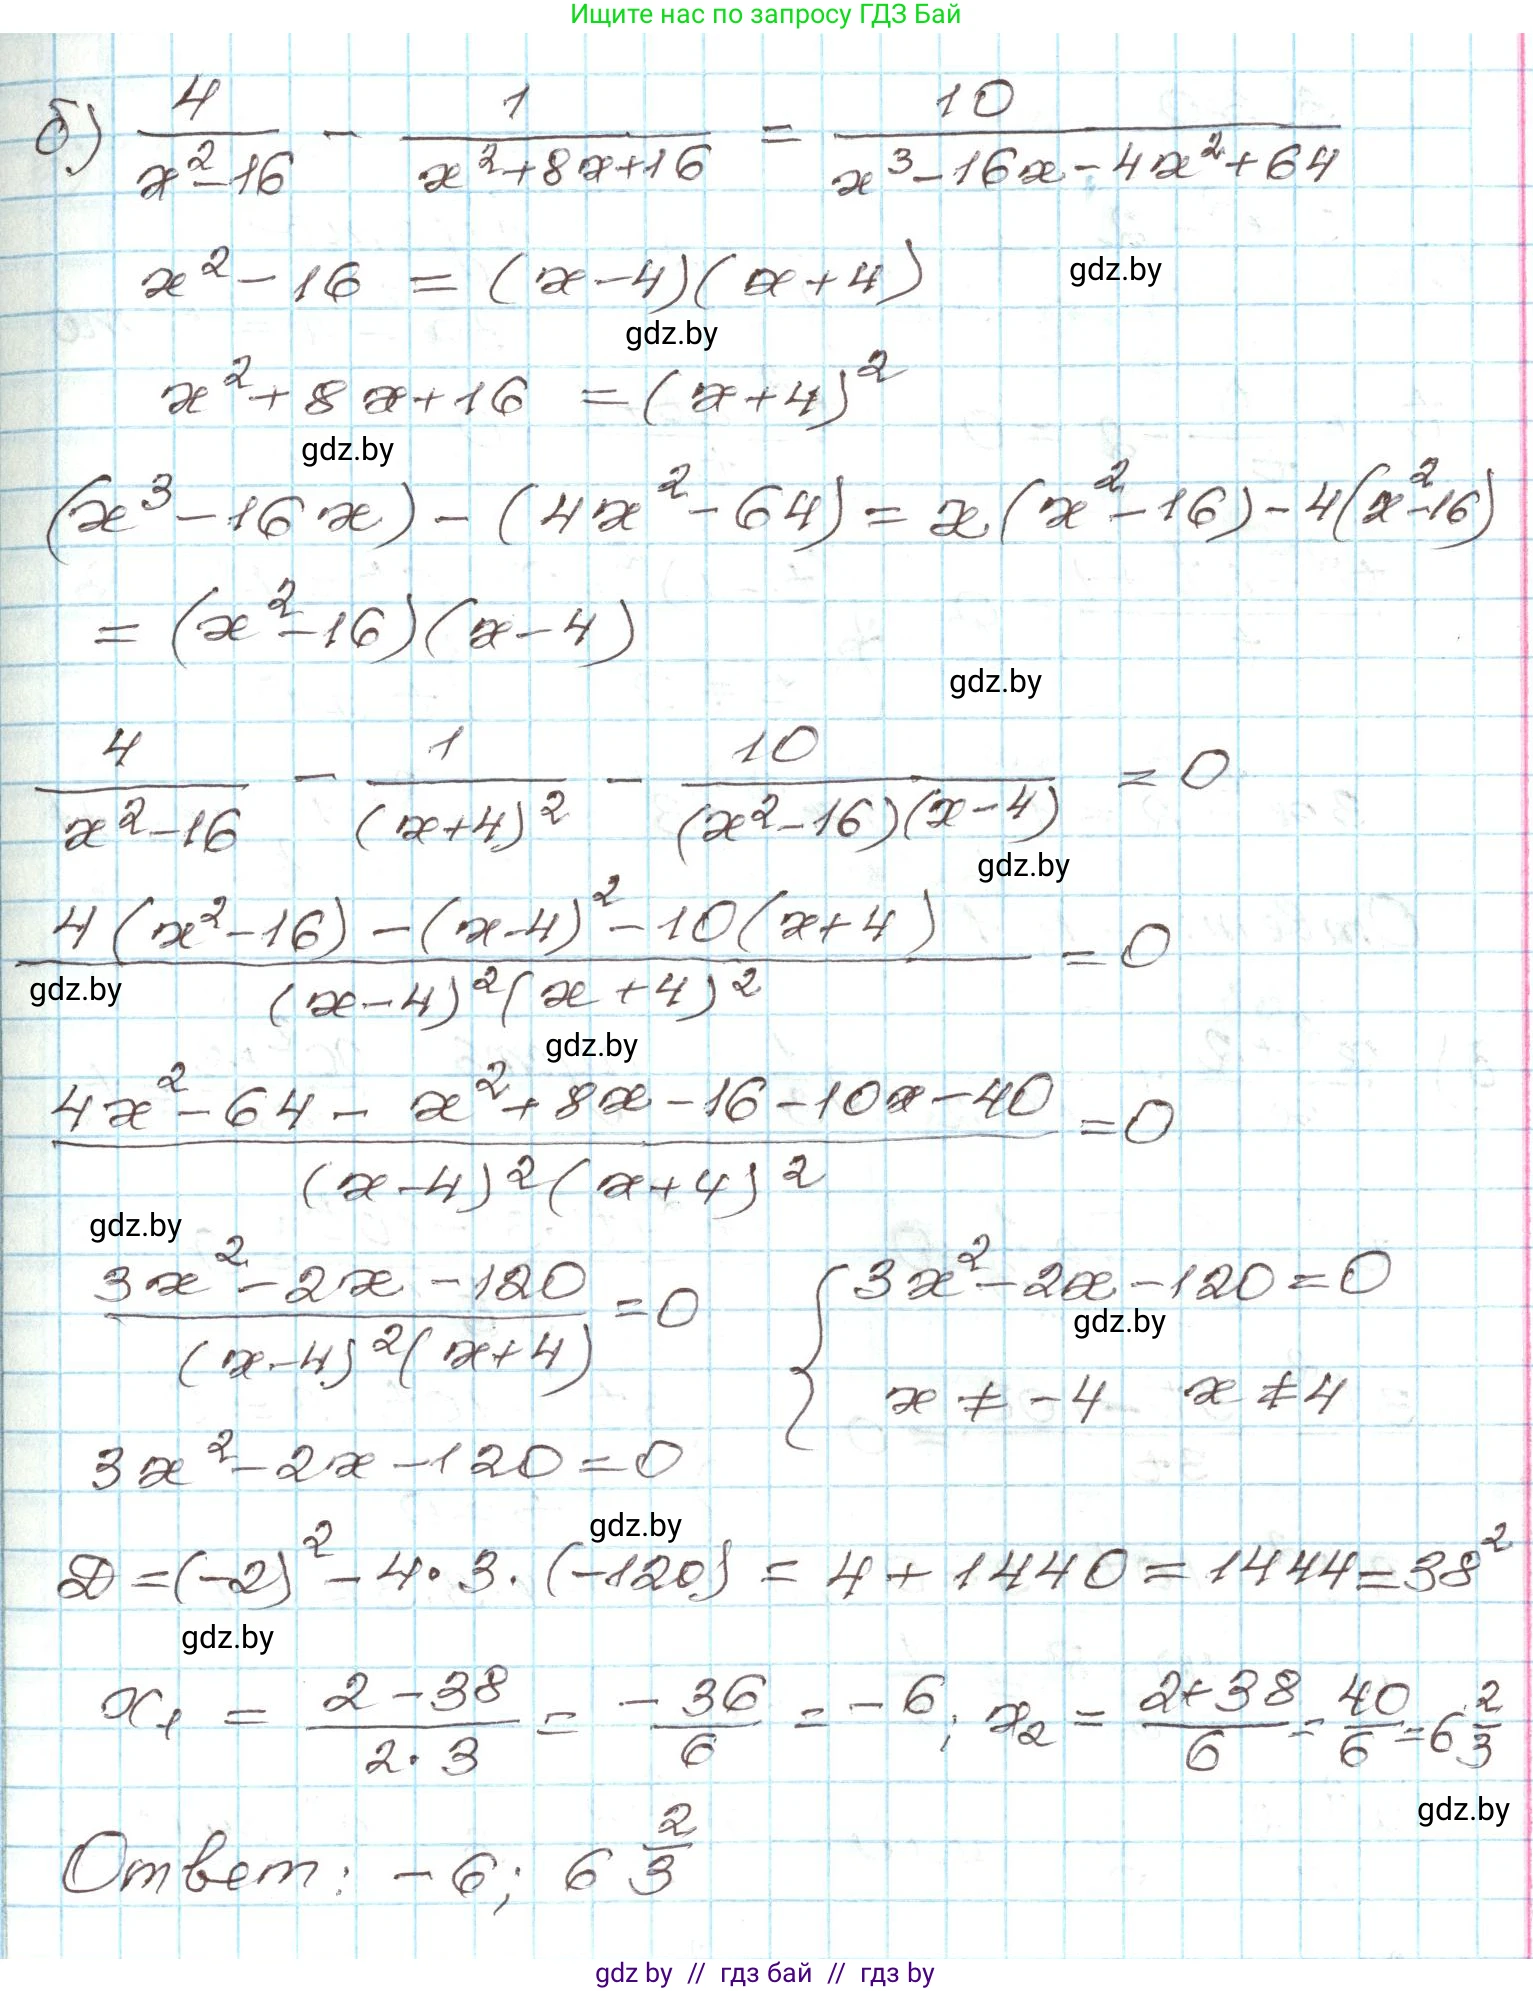 Ищите нас по запросу ГДЗ Бай
б) 4/(x²-16) - 1/(x²+8x+16) = 10/(x³-16x-4x²+64)
x²-16 = (x-4)(x+4)
gdz.by
gdz.by
x²+8x+16 = (x+4)²
gdz.by
(x³-16x)-(4x²-64) = x(x²-16)-4(x²-16)
= (x²-16)(x-4)
gdz.by
4/(x²-16) - 1/(x+4)² - 10/((x²-16)(x-4)) = 0
gdz.by
(4(x²-16)-(x-4)²-10(x+4))/((x-4)²(x+4)²) = 0
gdz.by
gdz.by
(4x²-64-x²+8x-16-10x-40)/((x-4)²(x+4)²) = 0
gdz.by
(3x²-2x-120)/((x-4)²(x+4)) = 0 { 3x²-2x-120=0
gdz.by
x≠-4 x≠4
3x²-2x-120=0
gdz.by
D=(-2)²-4·3·(-120) = 4+1440 = 1444 = 38²
gdz.by
x₁ = (2-38)/(2·3) = -36/6 = -6; x₂ = (2+38)/6 = 40/6 = 6 2/3
gdz.by
Ответ: -6; 6 2/3
gdz by // гдз бай // гдз by